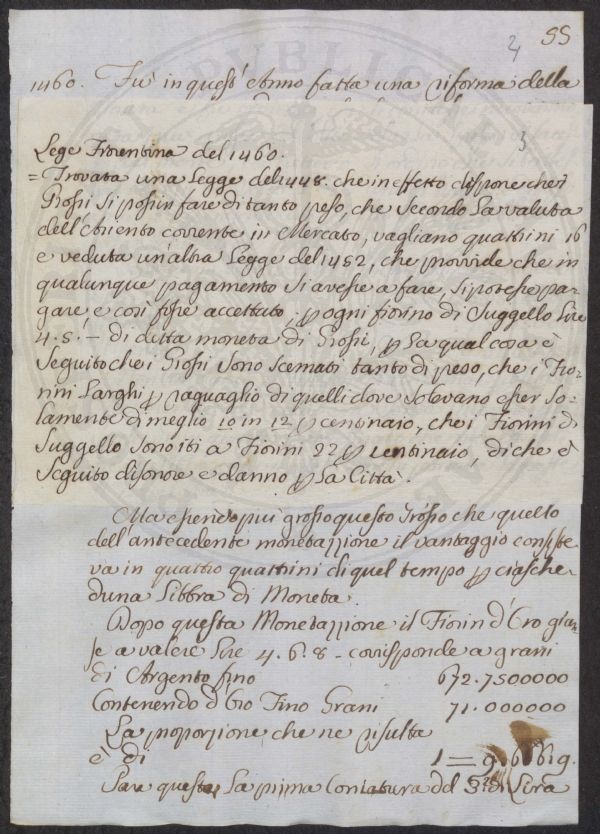 55
2
1460. Fù in quest'Anno fatta una riforma della
3
Lege Fiorentina del 1460.
= Trovata una Legge del 1448. che in effetto dispone che i
Grossi si possin fare di tanto peso, che secondo la valuta
dell'Ariento corrente in Mercato, vagliano quattrini 16
e veduta un'altra Legge del 1452, che provvide che in
qualunque pagamento si avesse a fare, si potesse pa-
gare, e così fusse accettato, p ogni fiorino di Suggello Lire
4.5.- di detta moneta di Grossi, p la qual cosa è
seguito che i Grossi sono scemati tanto di peso, che i Fio-
rini Larghi p raguaglio di quelli dove solevano esser so-
lamente di meglio 10 in 12 p centinaio, che i Fiorini di
Suggello sono iti a Fiorini 22 p centinaio, di che è
seguito disonore e danno p la Città.
Ma essendo più grosso questo Grosso che quello
dell'antecedente monetazzione il vantaggio consiste-
va in quattro quattrini di quel tempo p ciasche-
duna Libbra di Moneta.
Dopo questa Monetazzione il Fiorin d'Oro
a valere Lire 4.6.8 - corrisponde a grani
di Argento fino 672.7500000
Contenendo d'Oro Fino Grani 71.000000
La proporzione che ne risulta
è di 1 =
Pare questa la prima Coniatura del Lira